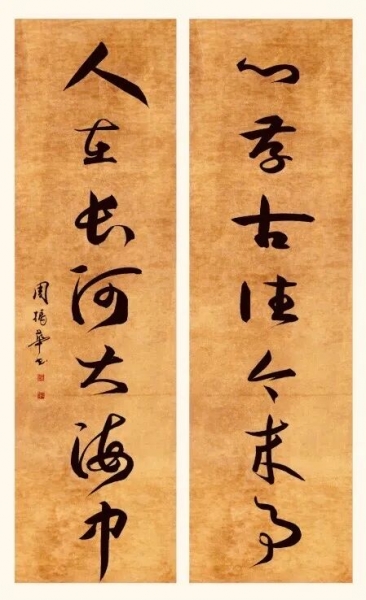 心存古往今来事
人在长河大海中
周杨华书